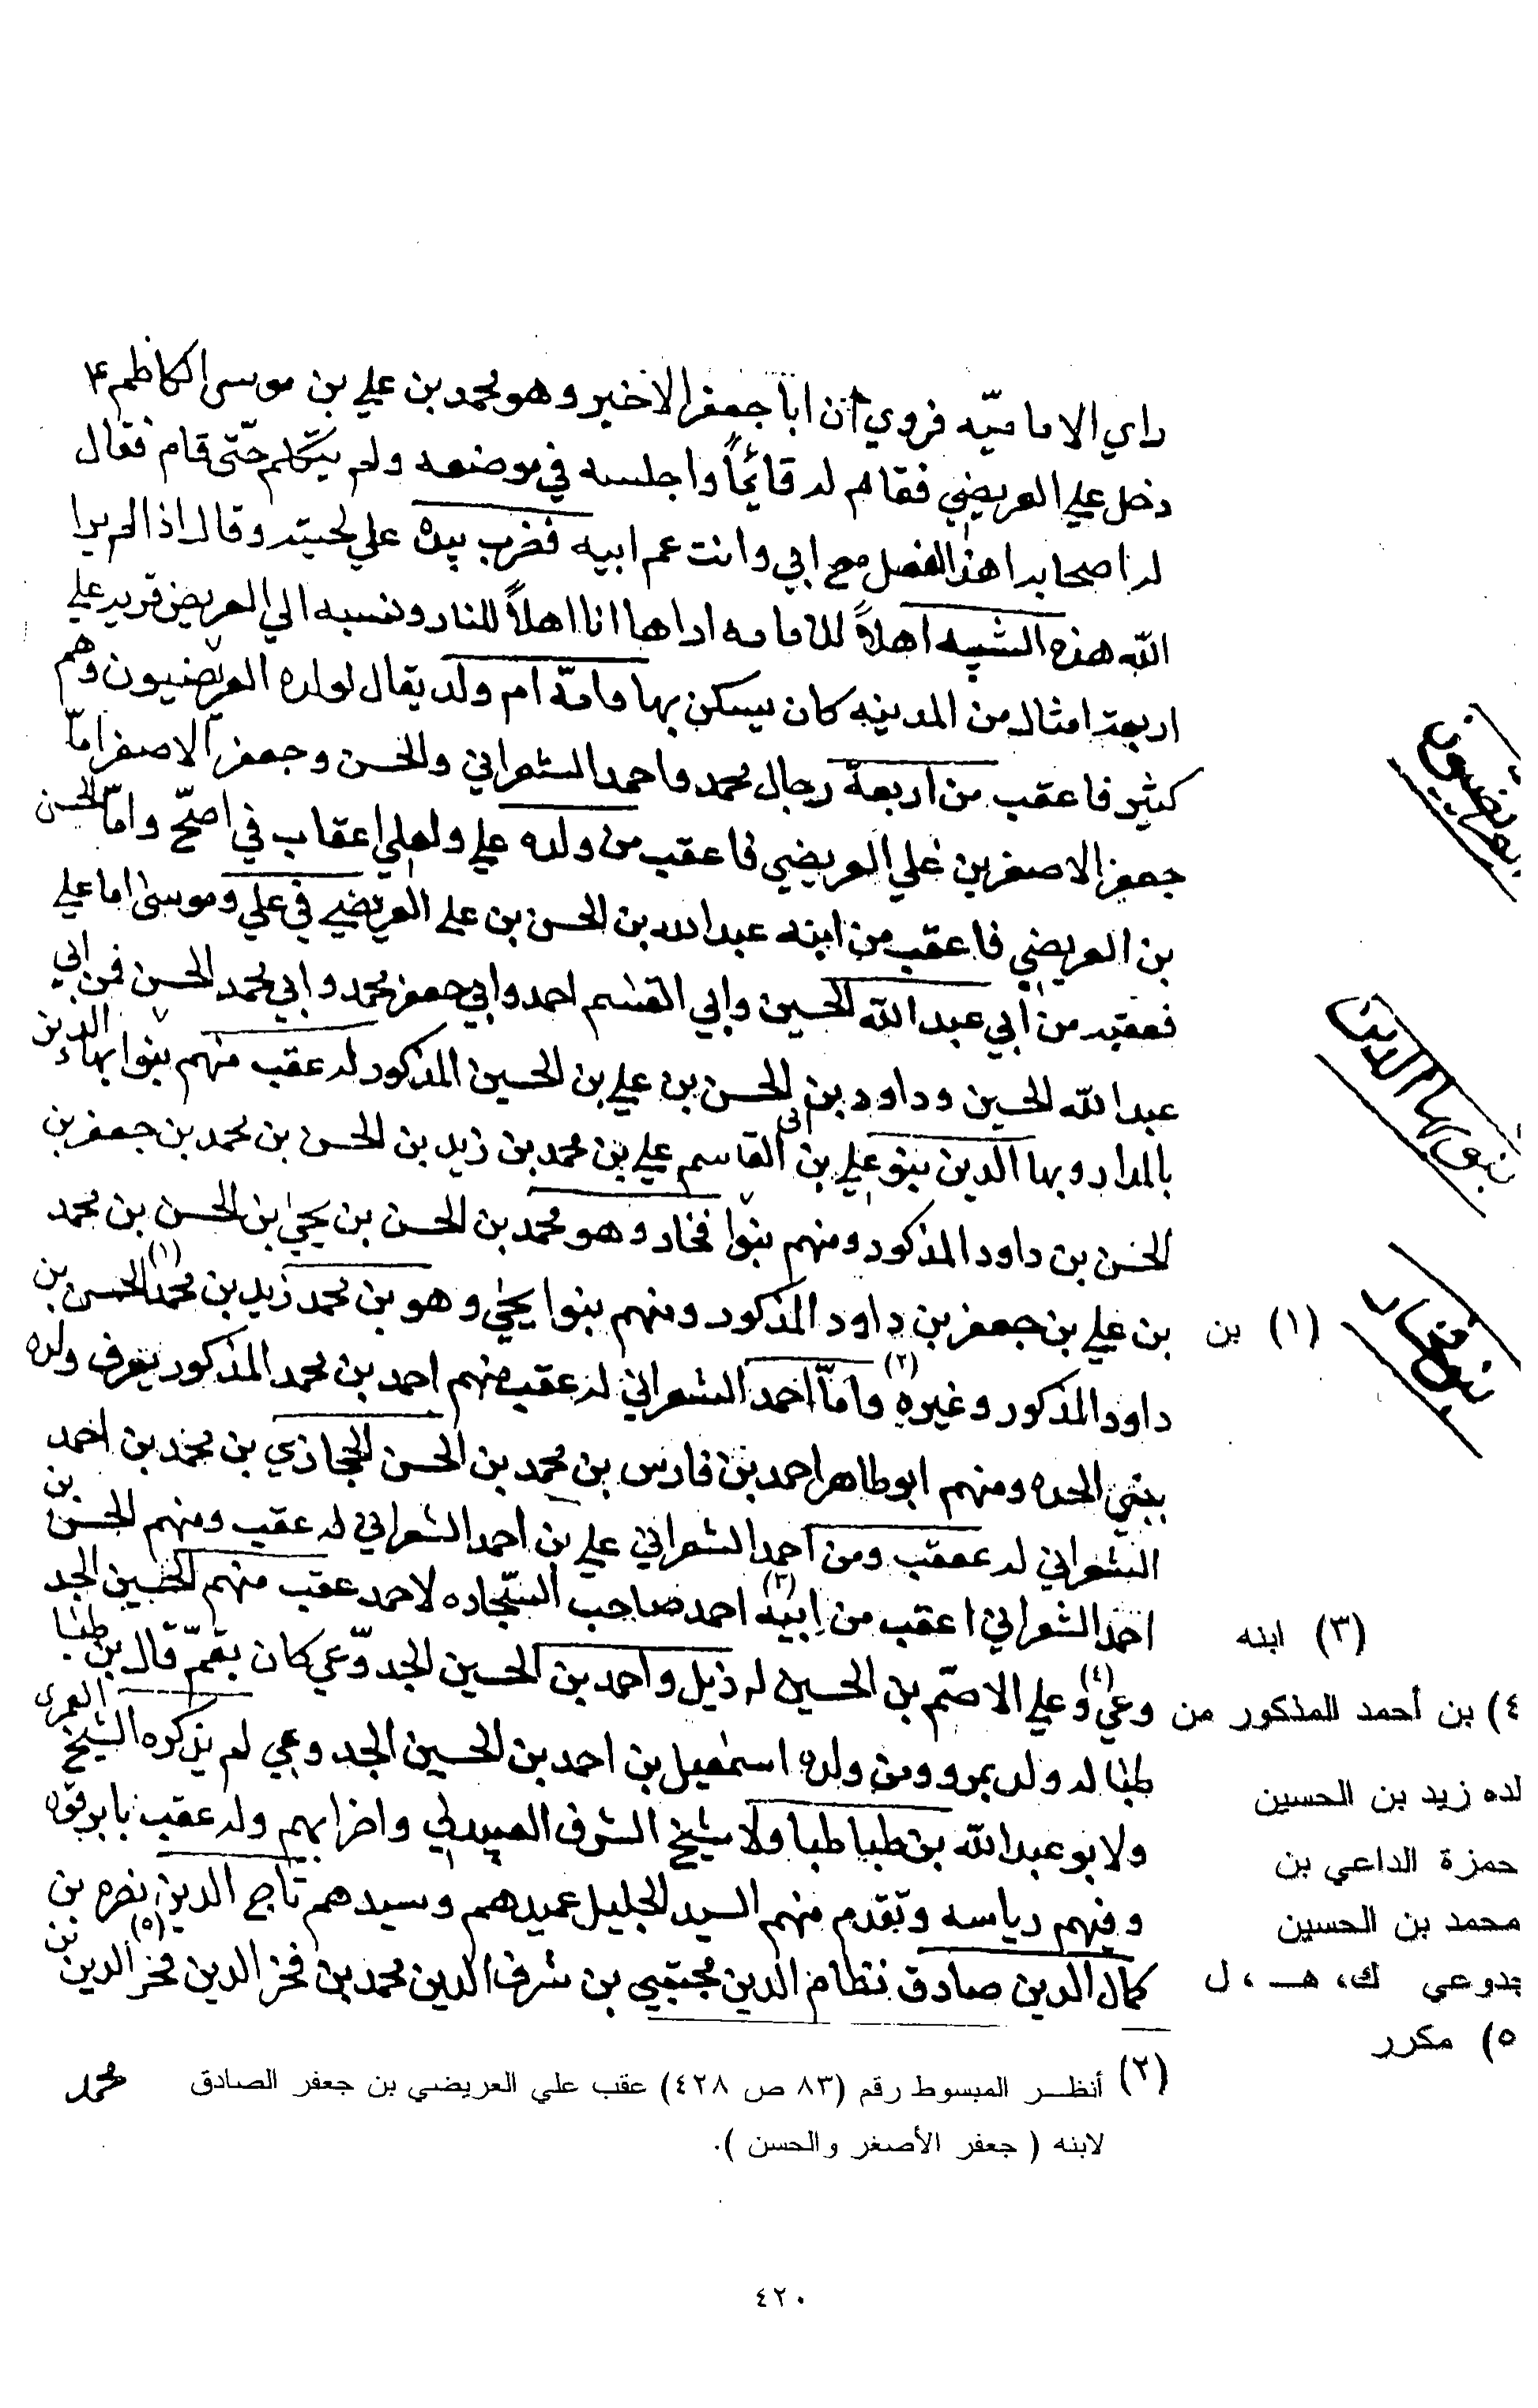 راي الاماميّه فروي ان ابا جعفر الاخير وهو محمد بن علي بن موسى الكاظم ع
دخل علي العريضي فقام له قائماً واجلسه في موضعه ولم يتكلم حتّى قام فقال
له اصحابه اهذا الفصل مع ابي وانت عم ابيه فضرب بيده علي لحيته وقال اذا لم يرا
الله هذه الشيبه اهلاً للامامه اراها انا اهلاً للنار ونسبه الي العريض قريه علي
اربعة امثال من المدينه كان يسكن بها وامّه ام ولد يقال لولده العريضيون وهم
العريضيون
كثير فاعقب من اربعة رجال محمد واحمد الشعراني والحسن وجعفر الاصغر امّا
جعفر الاصغر بن علي العريضي فاعقب من ولده علي ولعلي اعقاب في اصحّ وامّا الحسن
بن العريضي فاعقب من ابنه عبدالله بن الحسن بن علي العريضي في علي وموسى اما علي
فعقبه من ابي عبد الله الحسين وابي القسم احمد وابي جعفر محمد وابي محمد الحسن فمن ابي
عبد الله الحسين وداود بن الحسن بن علي بن الحسين المذكور له عقب منهم بنوا بهاء الدين
بنو بها الدين
بالمدار وبها الدين بنو علي بن ابي القاسم علي بن محمد بن زيد بن الحسن بن محمد بن جعفر بن
الحسن بن داود المذكور ومنهم بنوا فخار وهو محمد بن الحسن بن يحيى بن الحسن بن محمد
بنو فخار
بن علي بن جعفر بن داود المذكور ومنهم بنوا يحيى وهو بن محمد زيد بن محمد (١) الحسن بن
(١) بن
داود المذكور وغيره (٢) وامّا احمد الشعراني له عقب منهم احمد بن محمد المذكور يعرف ولده
ببني الجده ومنهم ابو طاهر احمد بن فارس بن محمد بن الحسن الحجازي بن محمد بن احمد
الشعراني له عقب ومن احمد الشعراني علي بن احمد الشعراني له عقب ومنهم الحسن بن
احمد الشعراني اعقب من ابيه (٣) احمد صاحب السجاده لاحمد عقب منهم الحسين الجد
(٣) ابنه
وعي (٤) وعلي الاصم بن الحسين له ذيل واحمد بن الحسين الجدوّعي كان بقمّ قال بن طبا
٤) بن أحمد المذكور من
طبا له ولد بمرو ومن ولده اسمعيل بن احمد بن الحسين الجدوعي لم يذكره الشيخ العمري
لده زيد بن الحسين
ولا بو عبد الله بن طبا طبا ولا شيخ الشرف العبيدلي واضرابهم وله عقب بابرقوه
حمزة الداعي بن
وفيهم رياسه وتقدم منهم السيد الجليل عميدهم وسيدهم تاج الدين نصره بن
محمد بن الحسين
كمال الدين صادق نظام الدين مجتبي بن شرف الدين محمد بن فخر الدين فخر الدين (٥) بن
جدوعي ك، هـ، ل
٥) مكرر
(٢) أنظر المبسوط رقم (٨٣ ص ٤٢٨) عقب علي العريضي بن جعفر الصادق
محمد
لابنه ( جعفر الأصغر والحسن ).
٤٢٠